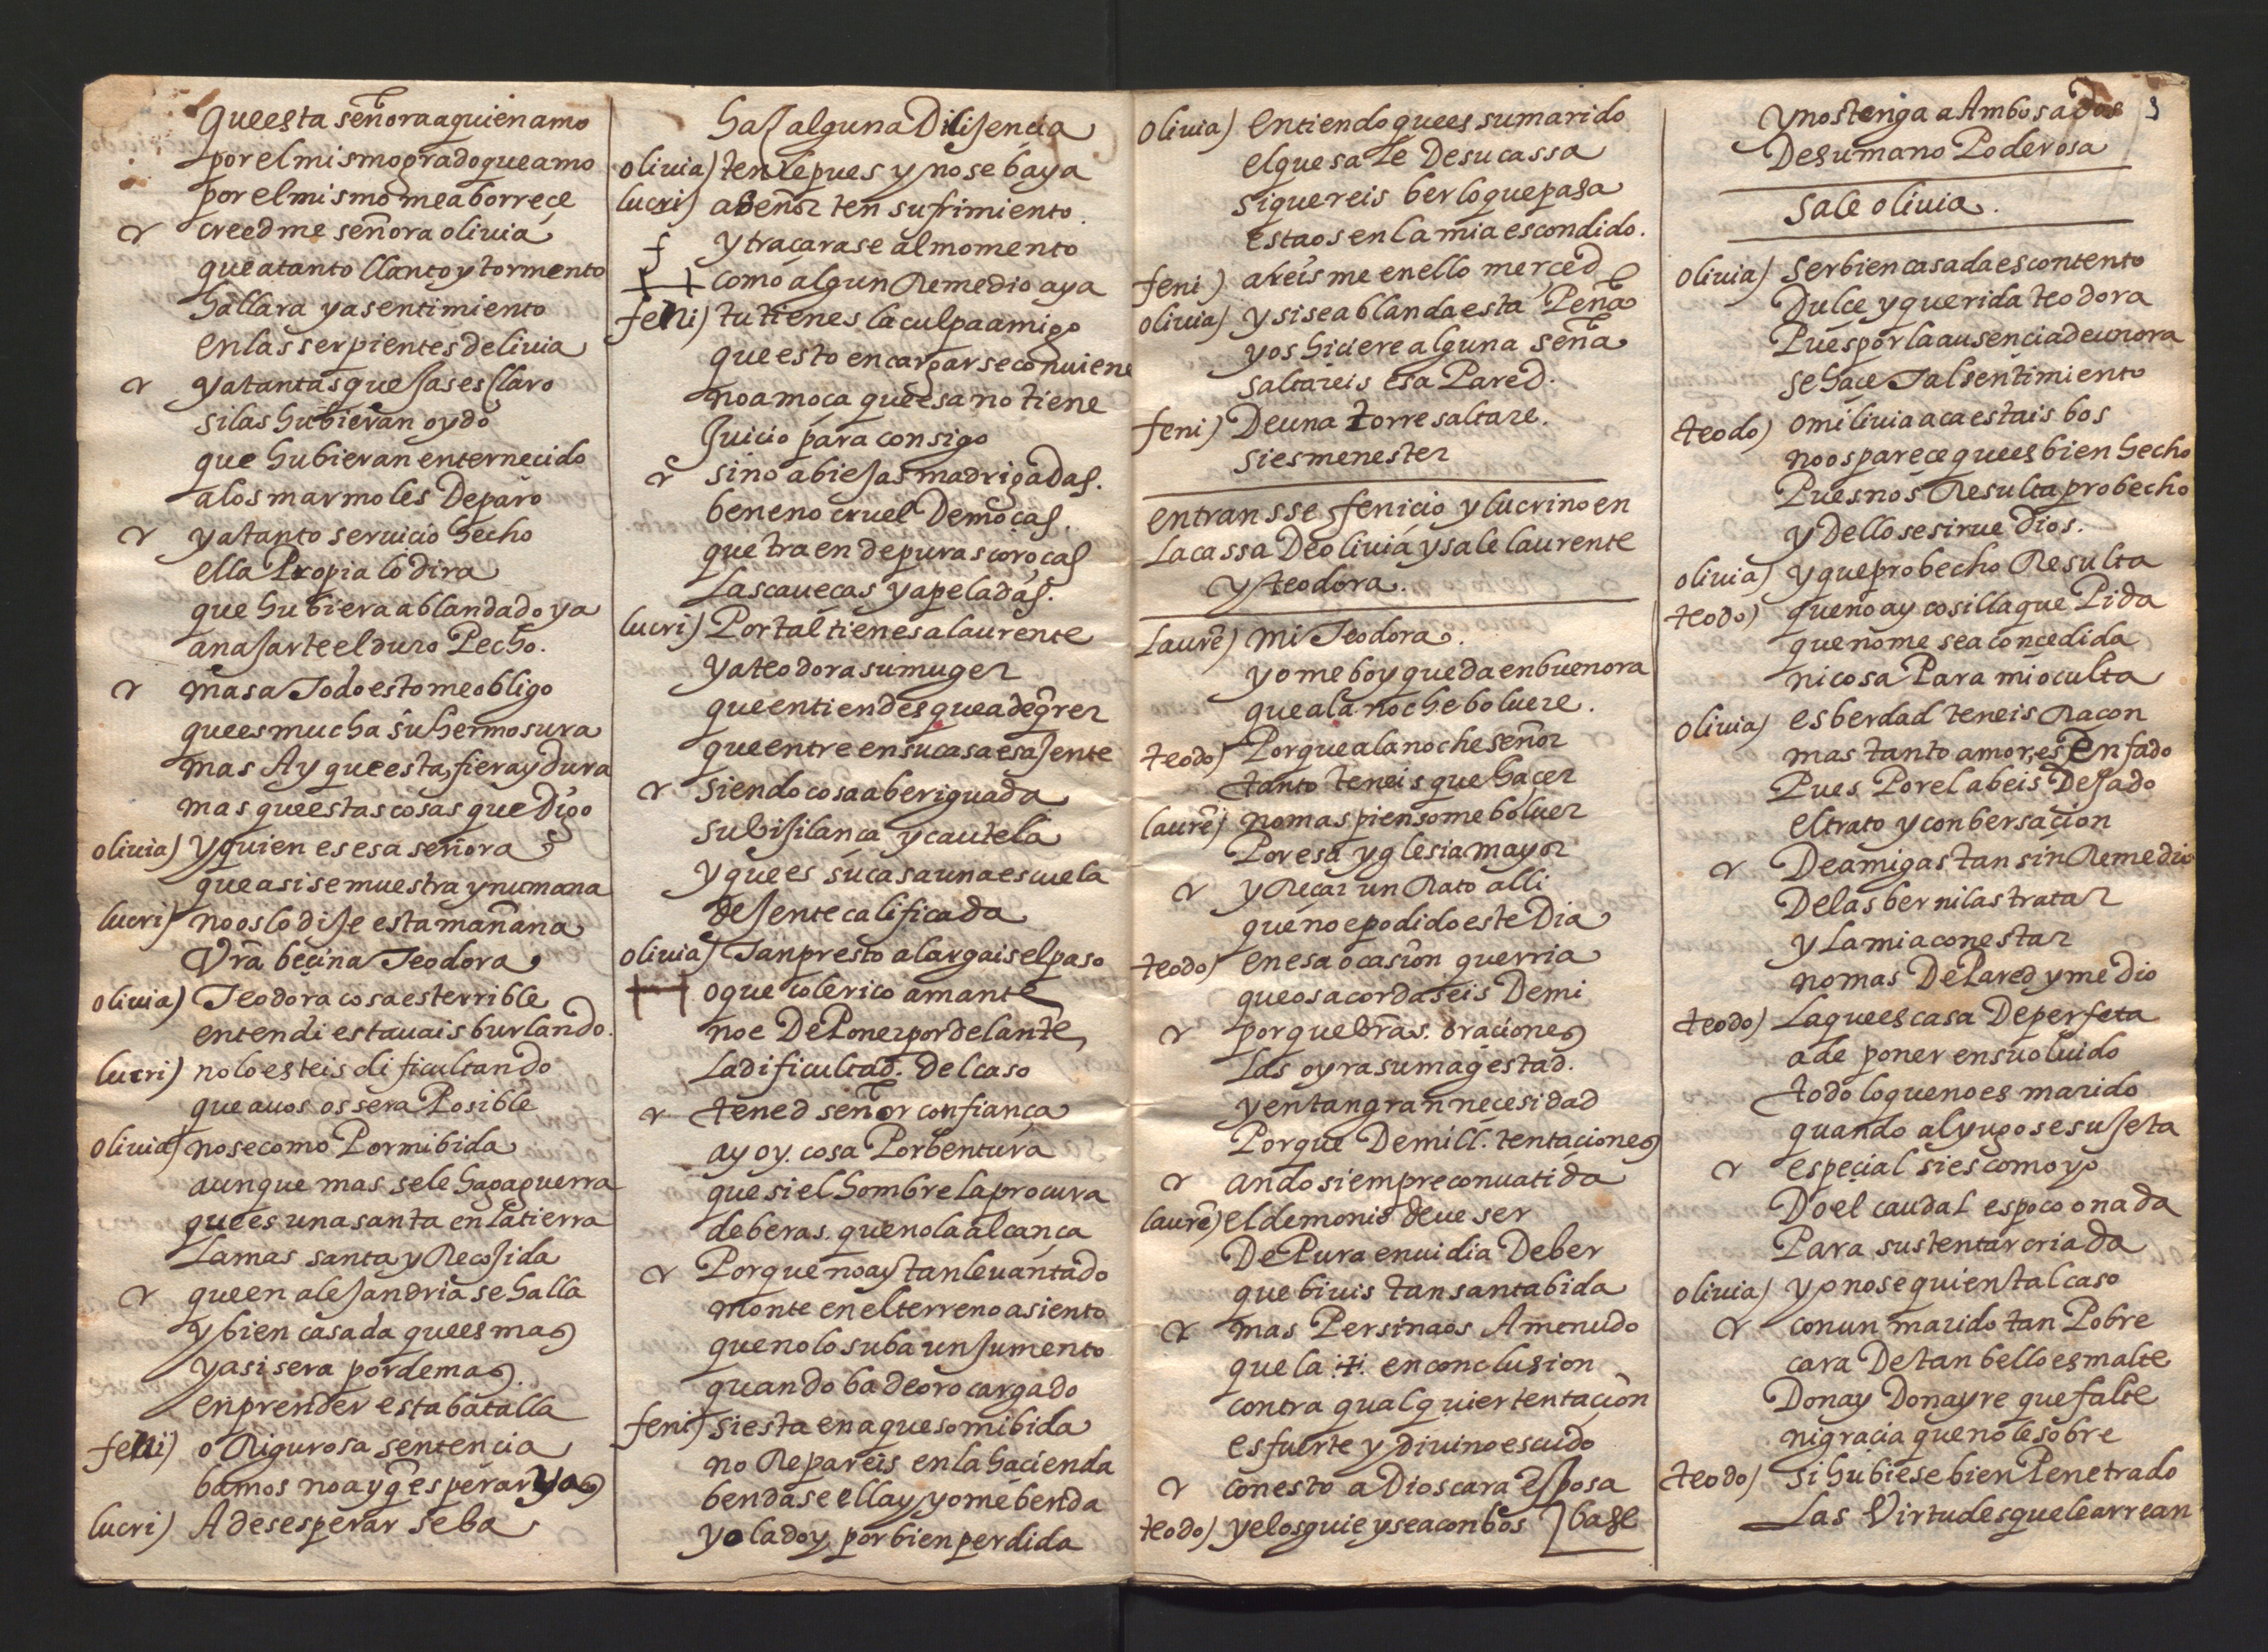 que esta señora a quien amo
por el mismo grado que amo
por el mismo me aborrece
creed me señora oliuia
que a tanto llanto y tormento
hallara ya sentimiento
en las serpientes de liuia
ya tantas quejas es claro
si las hubieran oydo
que hubieran enternecido
a los marmoles De paro
ya tanto seruicio hecho
ella Propia lo dira
que hubiera ablandado ya
anajarte el duro Pecho.
mas a Todo esto me obligo
que es mucha su hermosura
mas Ay que esta fiera y Dura
mas que estas cosas que Digo
oliuia) y quien es esa señora
que asi se muestra ynumana
lucri) no os lo dije esta mañana
Vrã beçina Teodora
oliuia) Teodora cosa es terrible
entendi estauais burlando.
lucri) no lo esteis dificultando
que a uos os sera Posible
oliuia) no se como Por mi bida
aunque mas se le haga guerra
que es una santa en la tierra
La mas santa y Recojida
que en alejandria se halla
y bien casada que es mas
y asi sera por demas.
enprender esta batalla
feni) o Rigurosa sentencia
bamos no ay q̃ esperar ya
lucri) A desesperar se ba
haz alguna Dilijencia
oliuia) tenle pues y no se baya
lucri) a señor ten sufrimiento.
y traçarase al momento
como algun Remedio aya
feni) tu tienes la culpa amigo
que esto encargarse conuiene
no a moça que esa no tiene
Juicio para consigo
sino a biejas madrigadas.
beneno cruel De moças.
que traen de puras coroças
Las caueças ya peladas.
lucri) Por tal tienes a laurente
y a teodora su muger
que entiendes que a de q̃rer
que entre en su casa esa jente
siendo cosa aberiguada
su bijilança y cautela
y que es su casa una escuela
de jente calificada
oliuia) Tan presto alargais el paso
o que colerico amante
no e De Poner por delante
La dificultad. del caso
tened señor confiança
ay oy. cosa Por bentura
que si el hombre la procura
de beras. que no la alcança
Porque no ay tan leuantado
monte en el terreno asiento
que no lo suba un jumento
quando ba de oro cargado
feni) si esta en aqueso mi bida
no Repareis en la hacienda
bendase ella y yo me benda
yo la doy por bien perdida
oliuia) entiendo que es su marido
el que sale De su cassa
si quereis ber lo que pasa
estaos en la mia escondido.
feni) areis me en ello merced
oliuia) y si se ablanda esta Peña
y os hiciere alguna seña
saltareis esa Pared.
feni) De una torre saltare.
si es menester
entransse fenicio y lucrino en
La cassa De oliuia y sale laurente
y teodora.
Laurẽ) mi Teodora.
yo me boy queda en buen ora
que a la noche boluere.
teodo) Porque a la noche señor
tanto teneis que hacer
laurẽ) no mas pienso me boluer
Por esa yglesia mayor
y Reçar un Rato alli
que no e podido este Dia
teodo) en esa ocasion querria
que os acordaseis De mi
porque brãs. oraciones
Las oyra su magestad.
y en tan gran necesidad
Porque De mill. tentaciones
ando siempre conuatida
laurẽ) el demonio deue ser
De Pura enuidia De ber
que biuis tan santa bida
mas Persinaos A menudo
que la ✠ en conclusion
contra qualquier tentacion
es fuerte y diuino escudo
con esto a Dios cara esposa
teodo) y el os guie y sea con bos base
3
y nos tenga a Ambos a dos
De su mano Poderosa
Sale oliuia.
oliuia) ser bien casada es contento
Dulce y querida teodora
Pues por la ausencia de un ora
se hace Tal sentimiento
teodo) o mi liuia aca estais bos
no os parece que es bien hecho
Pues nos Resulta probecho
y Dello se sirue Dios.
oliuia) y que probecho Resulta
teodo) que no ay cosilla que Pida
que no me sea concedida
ni cosa Para mi oculta
oliuia) es berdad teneis Raçon
mas tanto amor, es Enfado
Pues Por el abeis Dejado
el trato y conbersacion
De amigas tan sin Remedio
De las bernilas tratar
y La mia con estar
no mas De Pared y medio
teodo) La que es casa De perfeta
a de poner en su oluido
todo lo que no es marido
quando al yugo se sujeta
especial si es como yo
Do el caudal es poco o nada
Para sustentar criada
oliuia) yo no se quien tal caso
con un marido tan Pobre
cara De tan bello esmalte
Do nay Donayre que falte
ni gracia que no le sobre
teodo) si hubiese bien Penetrado
Las Virtudes que le arrean